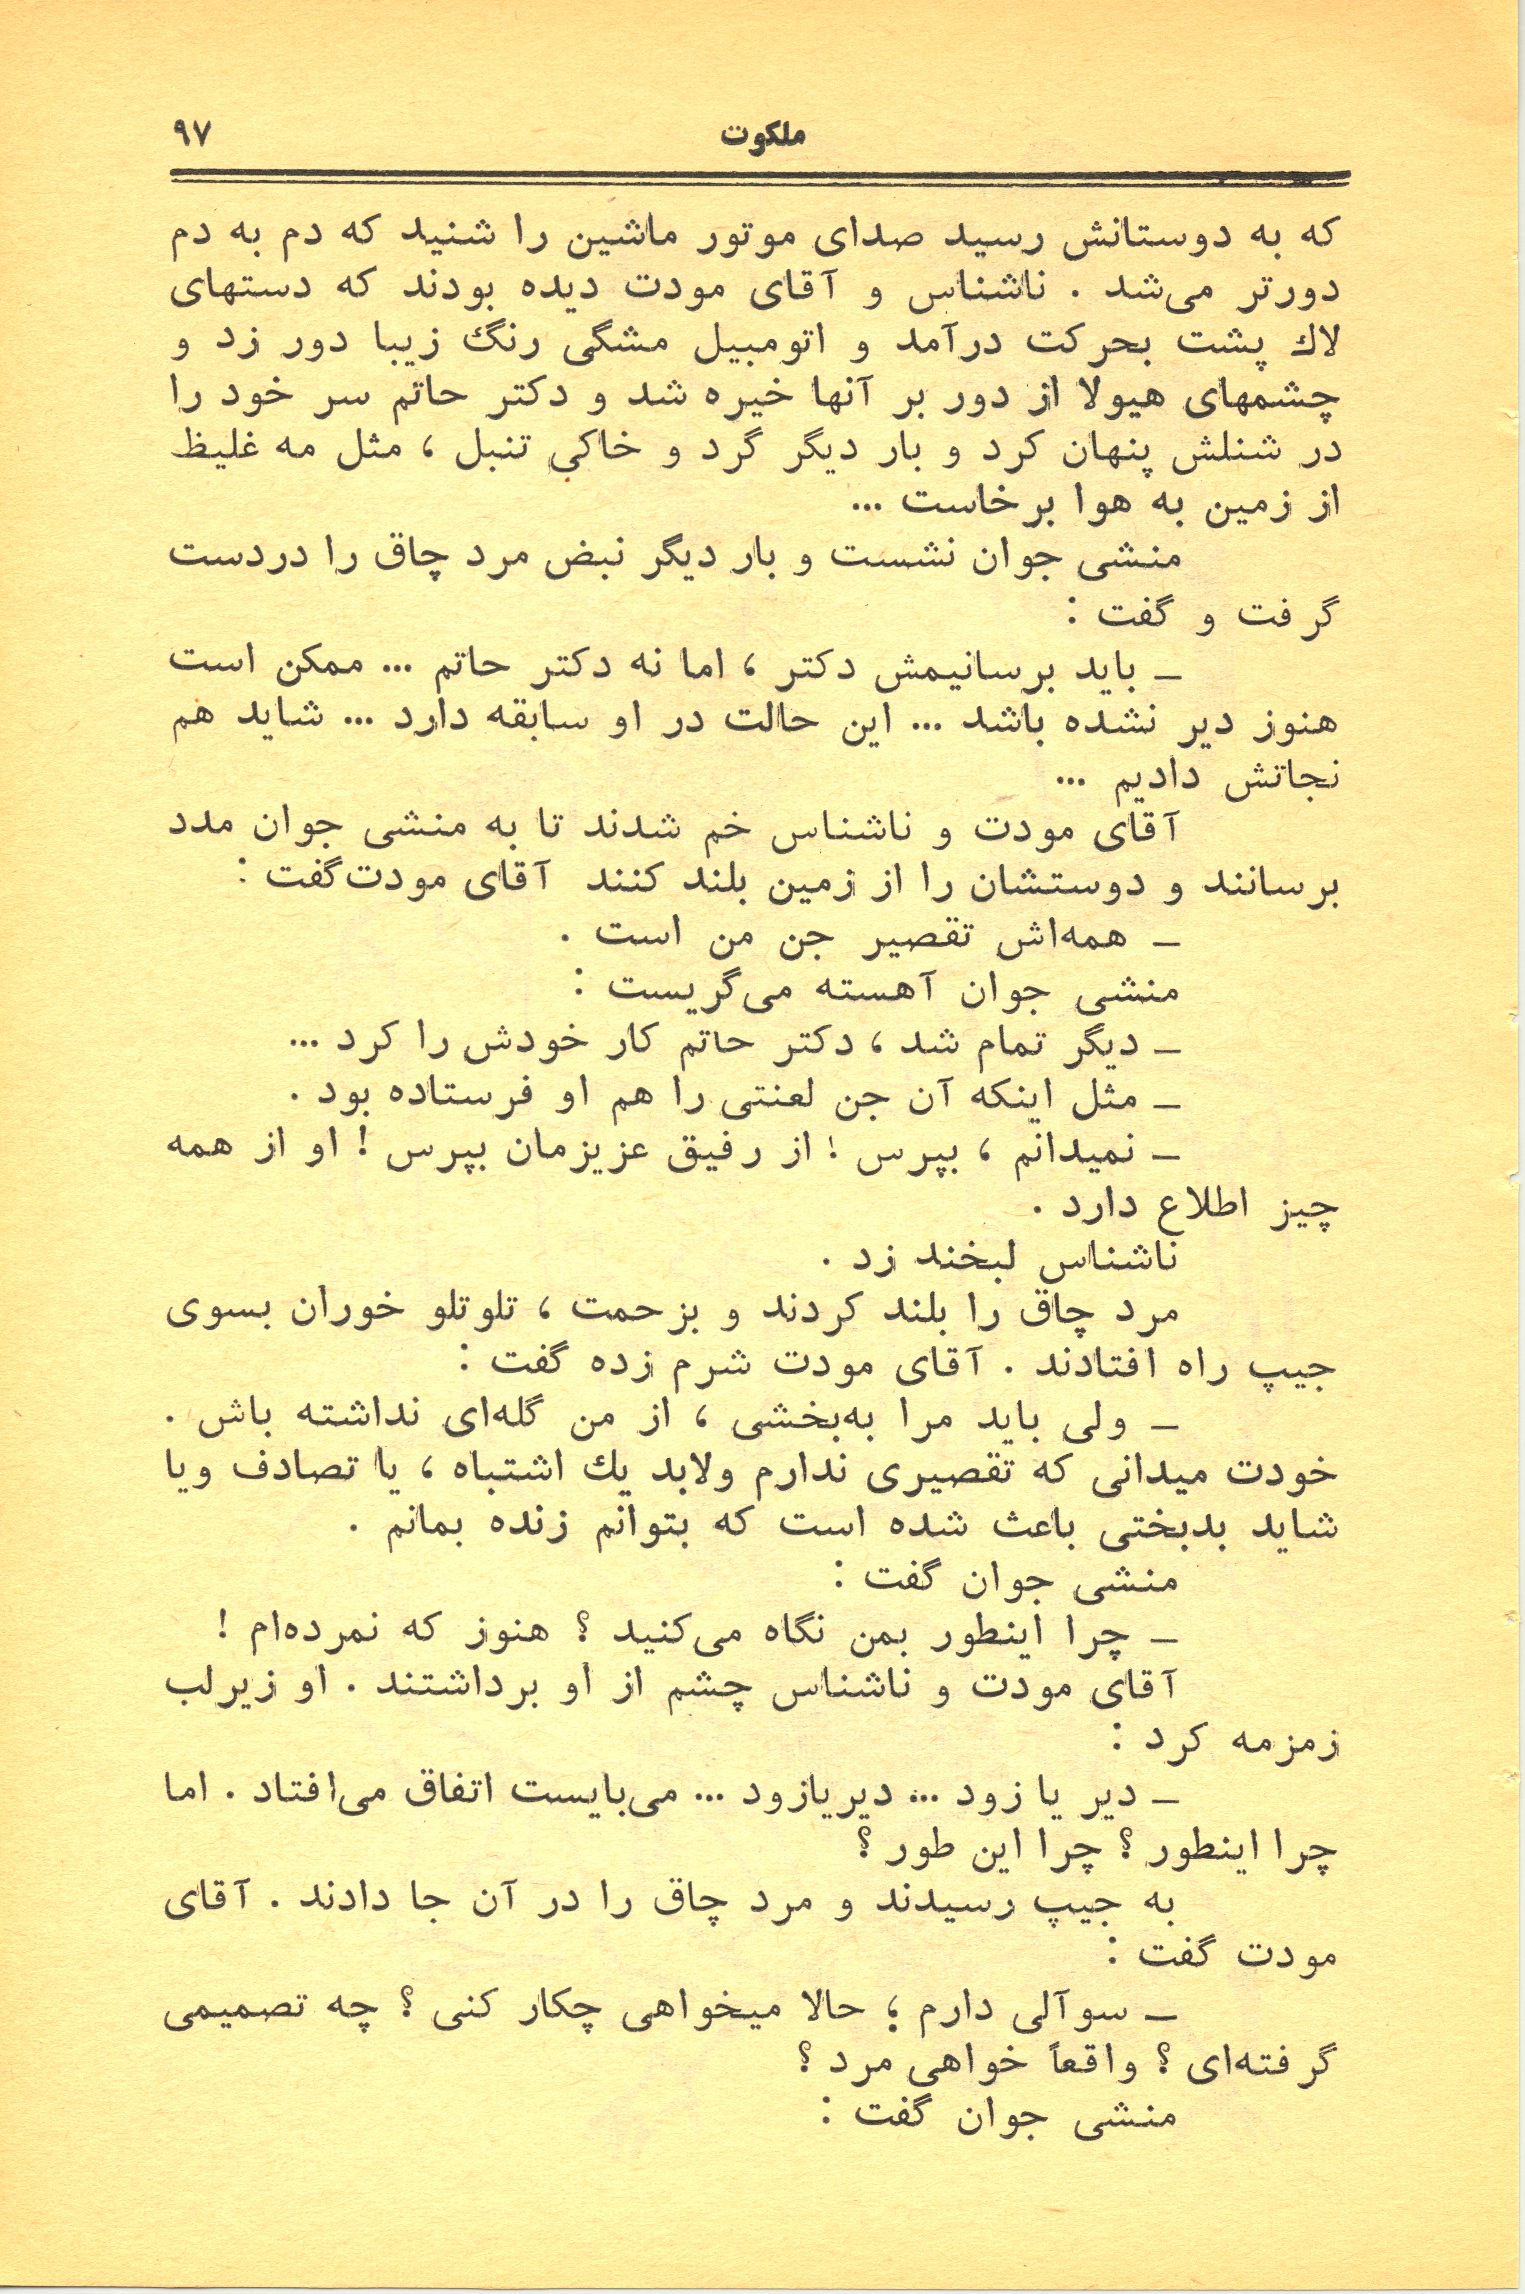 ملکوت ۹۷
که به دوستانش رسید صدای موتور ماشین را شنید که دم به دم
دورتر می‌شد . ناشناس و آقای مودت دیده بودند که دستهای
لاك پشت بحرکت درآمد و اتومبیل مشگی رنگ زیبا دور زد و
چشمهای هیولا از دور بر آنها خیره شد و دکتر حاتم سر خود را
در شنلش پنهان کرد و بار دیگر گرد و خاکی تنبل ، مثل مه غلیظ
از زمین به هوا برخاست ...
منشی جوان نشست و بار دیگر نبض مرد چاق را دردست
گرفت و گفت :
ــ باید برسانیمش دکتر ، اما نه دکتر حاتم ... ممکن است
هنوز دیر نشده باشد ... این حالت در او سابقه دارد ... شاید هم
نجاتش دادیم ...
آقای مودت و ناشناس خم شدند تا به منشی جوان مدد
برسانند و دوستشان را از زمین بلند کنند آقای مودت‌گفت :
ــ همه‌اش تقصیر جن من است .
منشی جوان آهسته می‌گریست :
ــ دیگر تمام شد ، دکتر حاتم کار خودش را کرد ...
ــ مثل اینکه آن جن لعنتی را هم او فرستاده بود .
ــ نمیدانم ، بپرس ! از رفیق عزیزمان بپرس ! او از همه
چیز اطلاع دارد .
ناشناس لبخند زد .
مرد چاق را بلند کردند و بزحمت ، تلوتلو خوران بسوی
جیپ راه افتادند . آقای مودت شرم زده گفت :
ــ ولی باید مرا به‌بخشی ، از من گله‌ای نداشته باش .
خودت میدانی که تقصیری ندارم ولابد یك اشتباه ، یا تصادف ویا
شاید بدبختی باعث شده است که بتوانم زنده بمانم .
منشی جوان گفت :
ــ چرا اینطور بمن نگاه می‌کنید ؟ هنوز که نمرده‌ام !
آقای مودت و ناشناس چشم از او برداشتند . او زیرلب
زمزمه کرد :
ــ دیر یا زود ... دیریازود ... می‌بایست اتفاق می‌افتاد . اما
چرا اینطور ؟ چرا این طور ؟
به جیپ رسیدند و مرد چاق را در آن جا دادند . آقای
مودت گفت :
ــ سوآلی دارم ؛ حالا میخواهی چکار کنی ؟ چه تصمیمی
گرفته‌ای ؟ واقعاً خواهی مرد ؟
منشی جوان گفت :